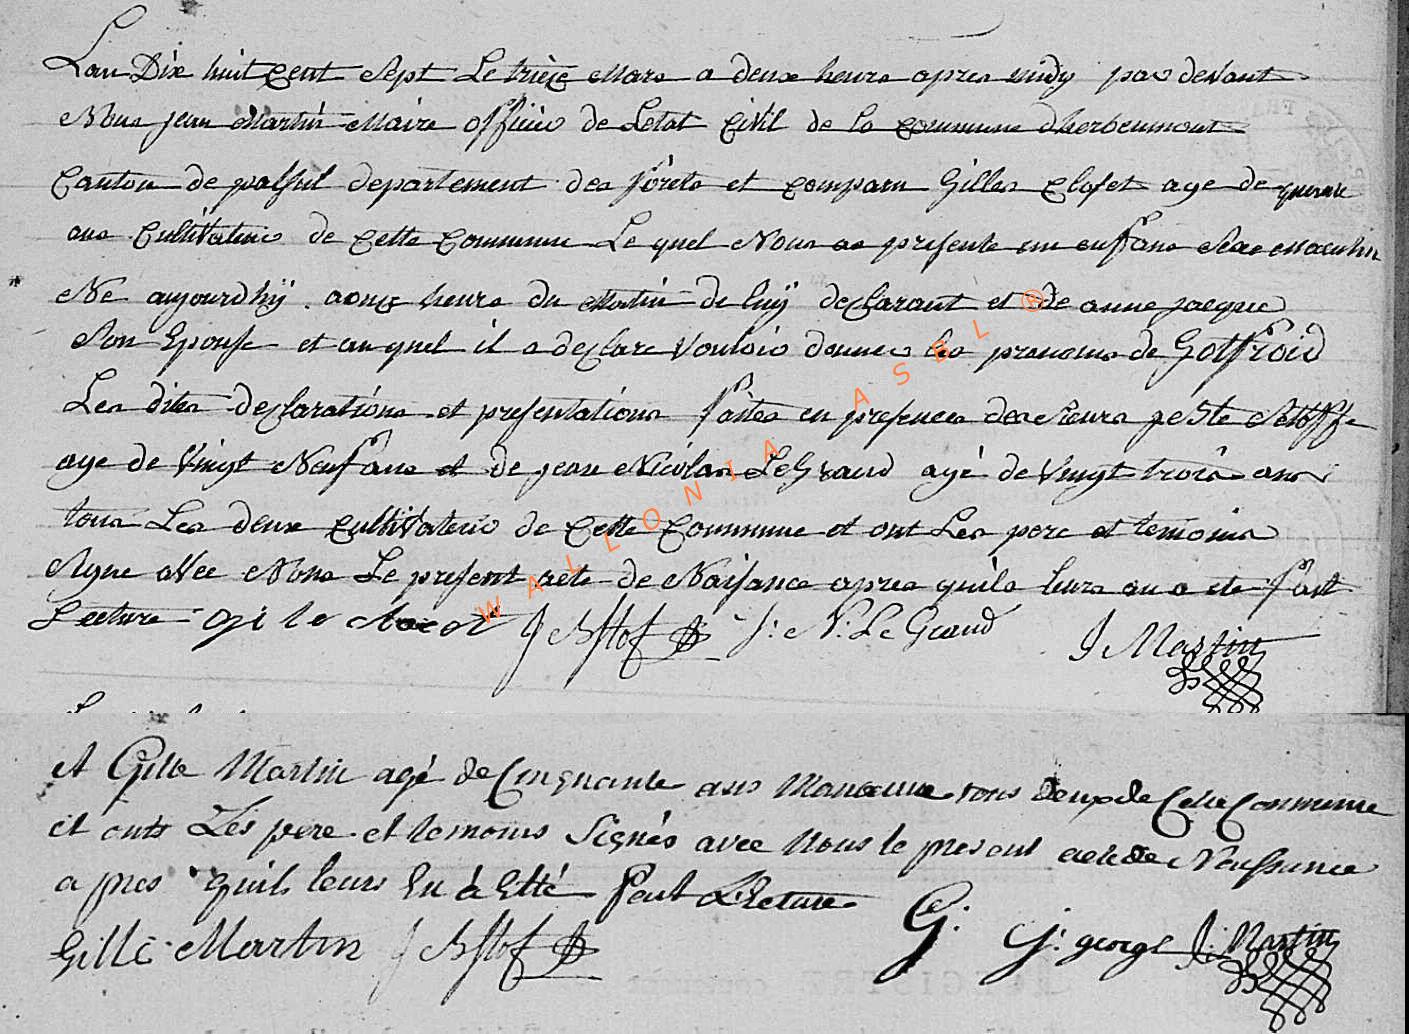 Lan Dix huit Cent Sept Le trièze Mars a deux heures apres midy par devant
Nous jean Martin Maire officier de Letat Civil de la Commune dherbeumont
Canton de palseul departement des forêts et Comparu Gilles age de
ans Cultivateur de Cette Commune Le quel Nous as presente un enffans Sexe Masculin
Ne aujourdhÿ a onze heures du Matin de luÿ declarant et de anne jacque
Son Epouse et au quel il a declare Vouloir donner les prenoms de Gotffroid
Les dites declarations et presentations faites en presences des Sieurs
age de Vingt Neuf ans et de jean Nicolas LeGrand agé de Vingt trois ans
tous Les deux Cultivateurs de Cette Commune et ont Les pere et temoins
Signe avec Nous Le present acte de Naisance apres quils leurs au a ete fait
Lecture gi le J: N: Le Grand J Martin
WALLONIA ASBL ®
et Gille Martin agé de Cinquante ans Manoeuvre tous deux de Cette Commune
et onts Les pere et temoins Signés avec Nous le present acte de Naissance
apres quils leurs En à Etté fait Lecture
Gille Martin G. J: george J: Martin